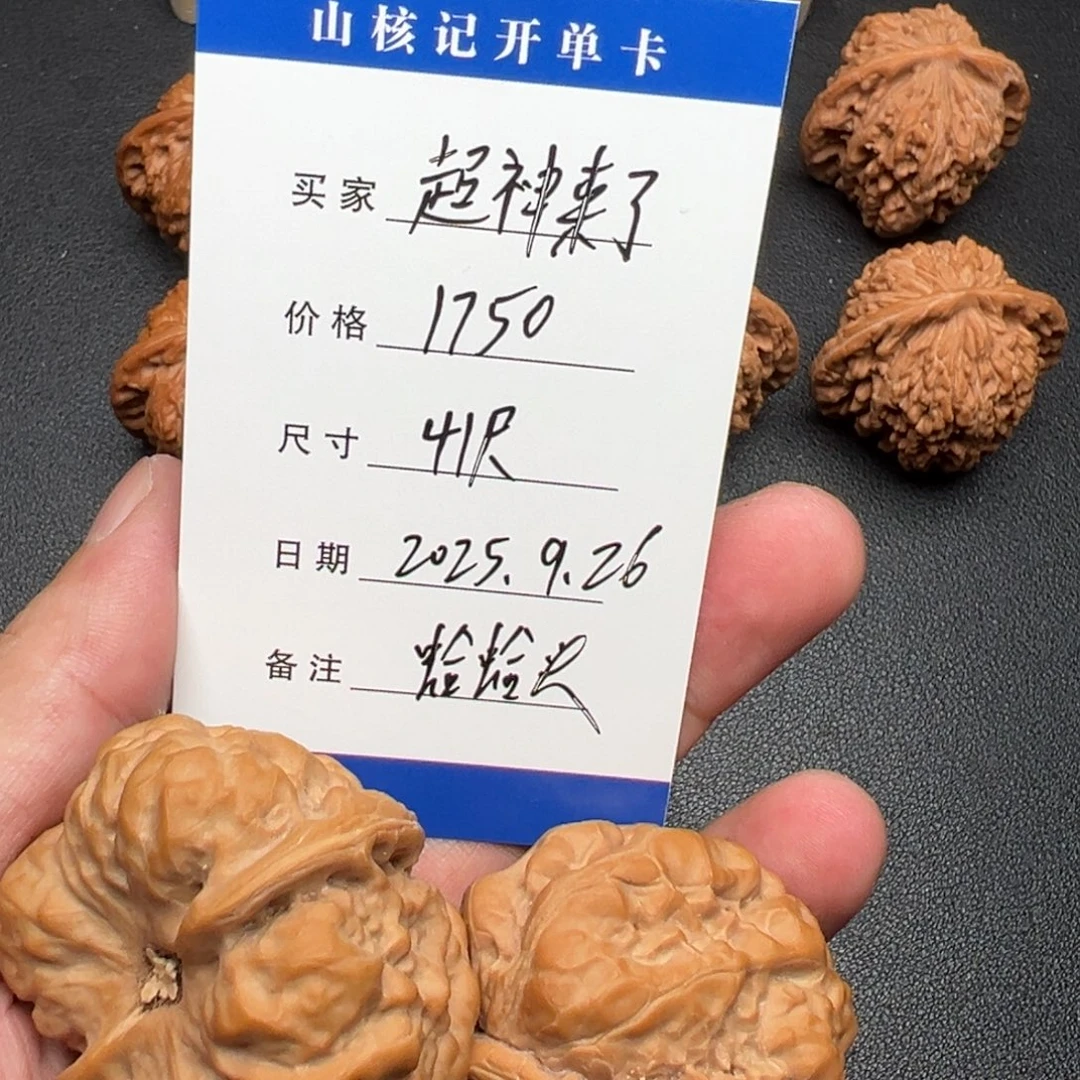 山核记开单卡
买家 超神来了
价格 1750
尺寸 41尺
日期 2025.9.26
备注